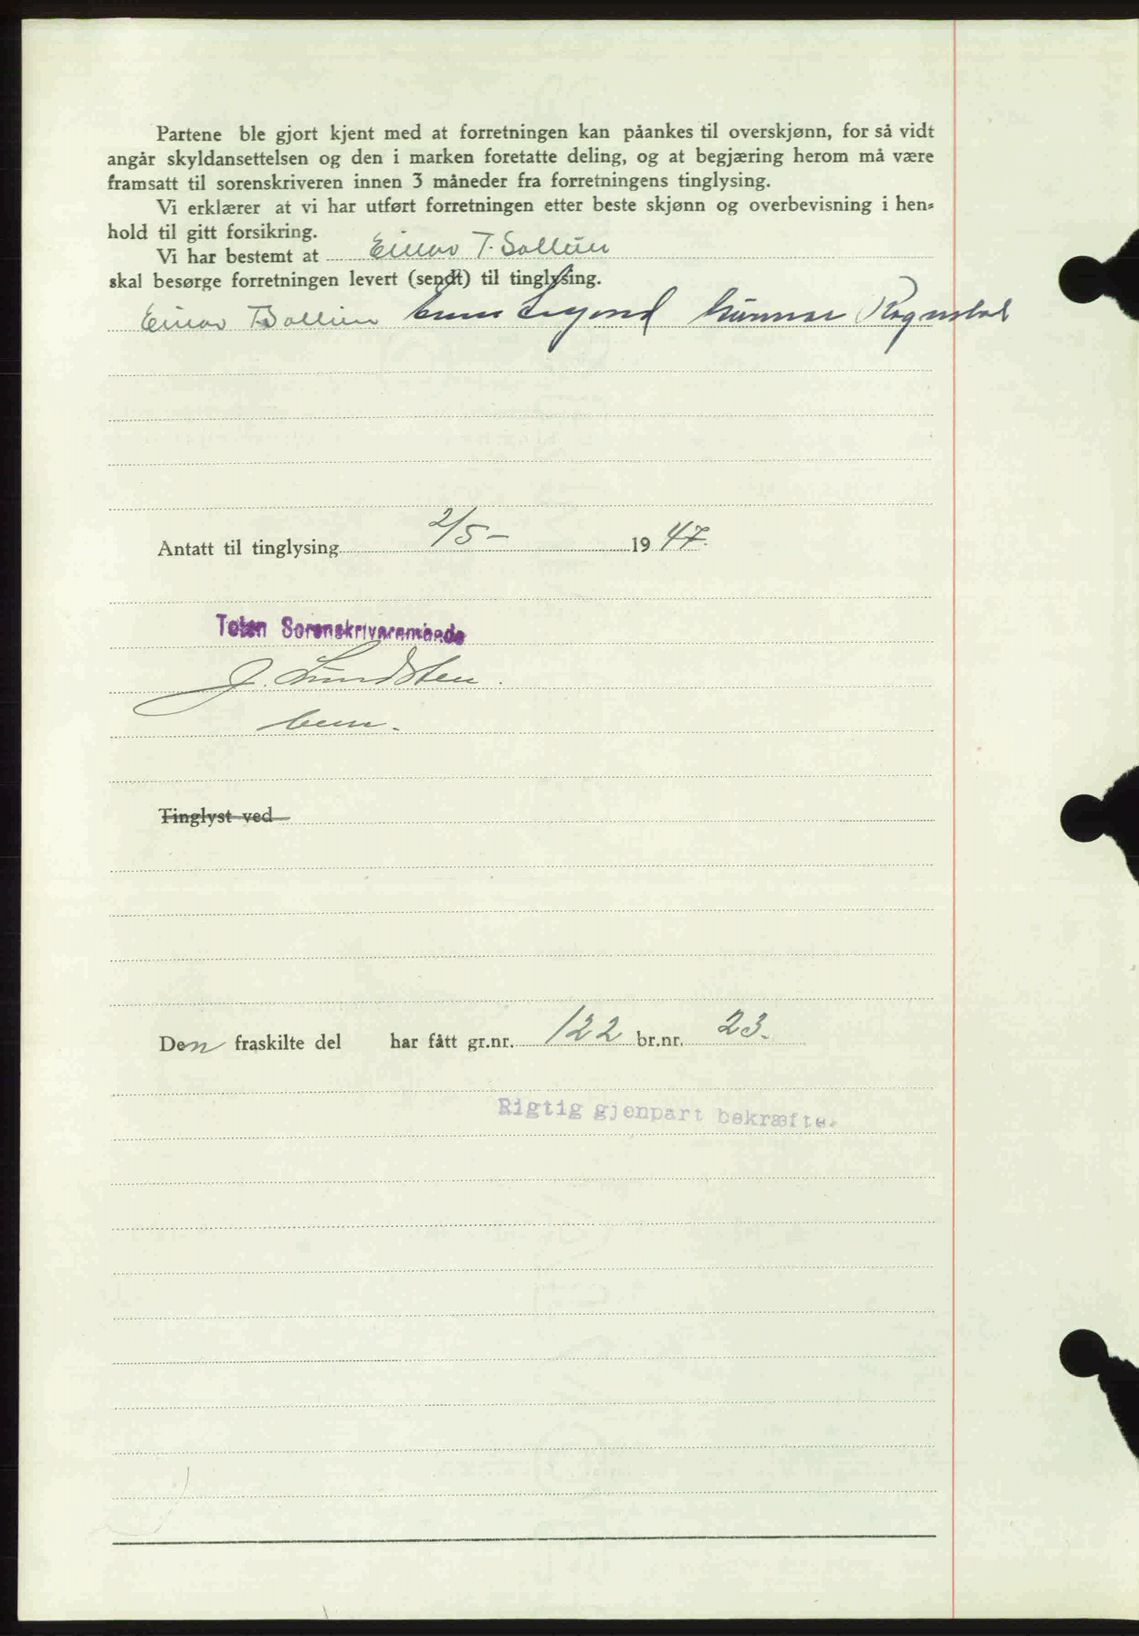 Partene ble gjort kjent med at forretningen kan påankes til overskjønn, for så vidt
angår skyldansettelsen og den i marken foretatte deling, og at begjæring herom må være
framsatt til sorenskriveren innen 3 måneder fra forretningens tinglysing.
Vi erklærer at vi har utført forretningen etter beste skjønn og overbevisning i hen-
hold til gitt forsikring.
Vi har bestemt at Einar T. Sollien
skal besørge forretningen levert (sendt) til tinglysing.
Einar T Sollien Gunnar Rognstad
Antatt til tinglysing 2/5- 1947.
Toten Sorenskriverembede
J. Lundsten.
Tinglyst ved
Den fraskilte del har fått gr.nr. 122 br.nr. 23.
Rigtig gjenpart bekræftes